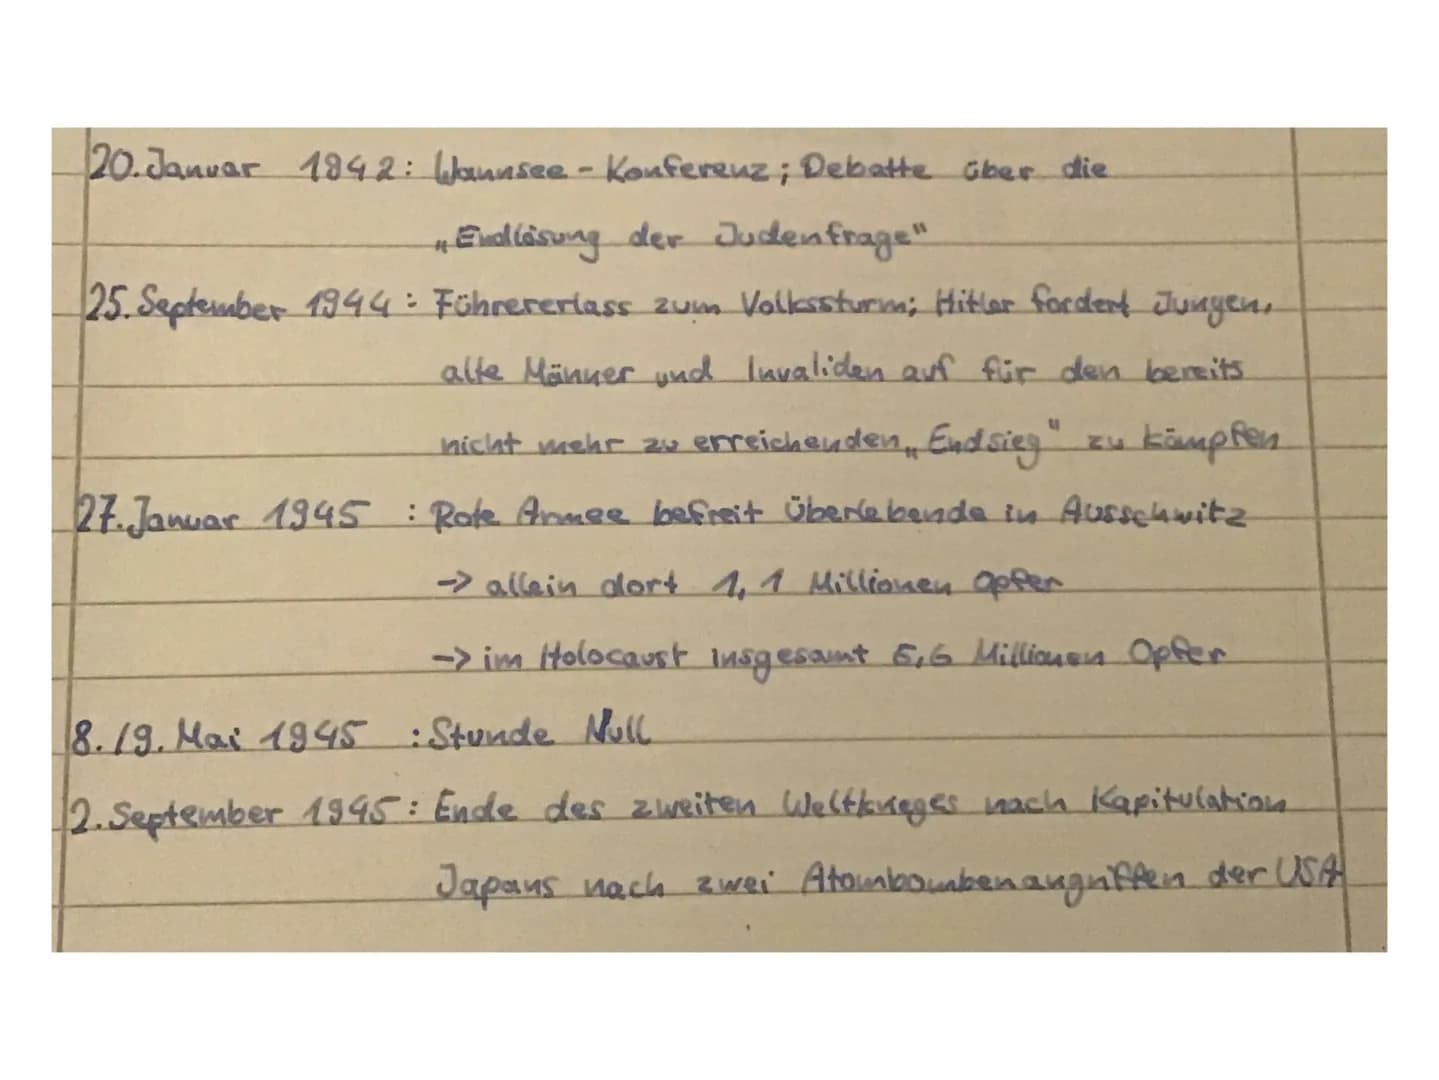 20. Januar 1942: Wannsee-Konferenz; Debatte über die
„Endlösung der Judenfrage"
25. September 1944: Führererlass zum Volkssturm; Hitler fordert Jungen,
alte Männer und Invaliden auf für den bereits
nicht mehr zu erreichenden „Endsieg" zu kämpfen
27. Januar 1945 : Rote Armee befreit Überlebende in Ausschwitz
-> allein dort 1,1 Millionen Opfer
-> im Holocaust insgesamt 5,6 Millionen Opfer
8./9. Mai 1945 : Stunde Null
2. September 1945: Ende des zweiten Weltkrieges nach Kapitulation
Japans nach zwei Atombombenangriffen der USA